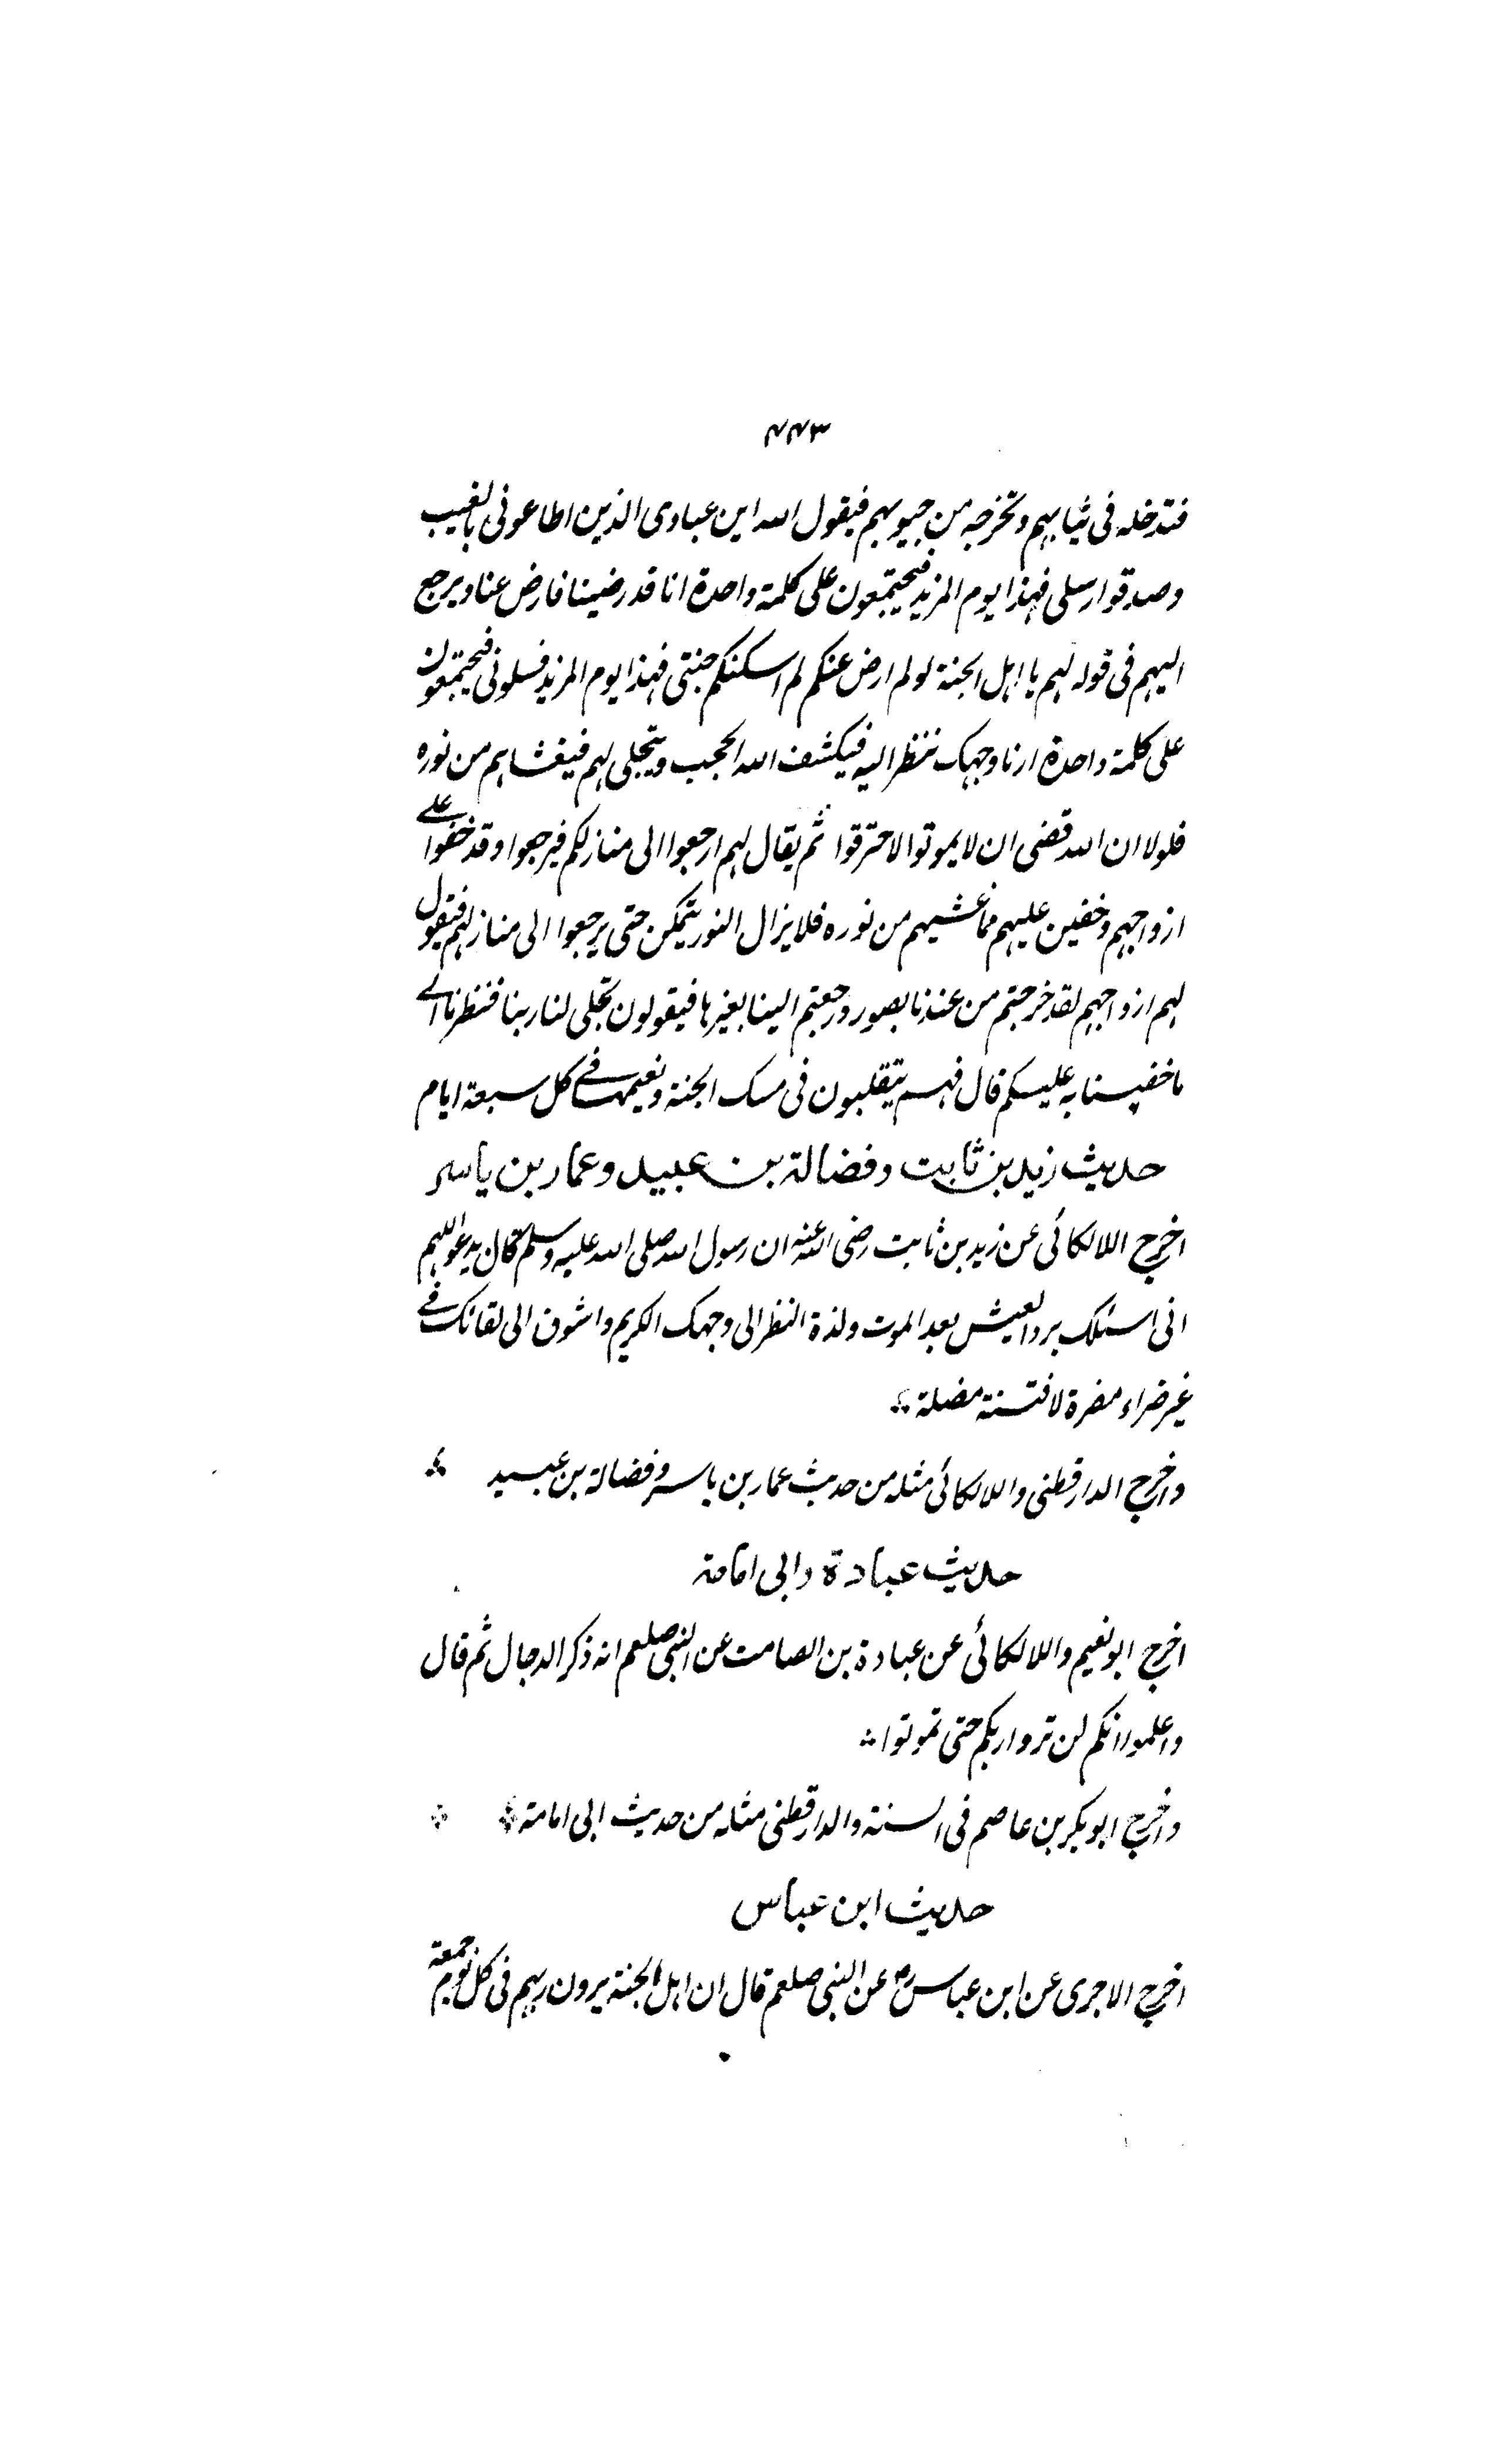 ۴۴۳
فتدخله فى ثيابهم وتخرجه من جيوبهم فيقول الله اين عبادى الذين اطاعونى بالغيب
وصدقوا رسلى فهذا يوم المزيد فيجتمعون على كلمة واحدة انا قد رضينا فارض عنا ويرجع
اليهم فى قوله لهم يا اهل الجنة لو لم ارض عنكم لم اسكنكم جنتى فهذا يوم المزيد فسلونى فيجتمعون
على كلمة واحدة ارنا وجهك ننظر اليه فيكشف الله الحجب ويتجلى لهم فيغشاهم من نوره
فلولا ان الله قضى ان لا يموتوا لاحترقوا ثم يقال لهم ارجعوا الى منازلكم فيرجعوا وقد خفوا على
ازواجهم وخفين عليهم مما غشيهم من نوره فلا يزال النور يتمكن حتى يرجعوا الى منازلهم فيقول
لهم ازواجهم لقد خرجتم من عندنا بصور ورجعتم الينا بغيرها فيقولون تجلى لنا ربنا فنظرنا الى
ما خفينا به عليكم قال فهم يتقلبون فى مسك الجنة ونعيمها فى كل سبعة ايام
حديث زيد بن ثابت وفضالة بن عبيد وعمار بن ياسر
اخرج اللالكائى عن زيد بن ثابت رضى الله عنه ان رسول الله صلى الله عليه وسلم كان يدعو اللهم
انى اسئلك برد العيش بعد الموت ولذة النظر الى وجهك الكريم واشوق الى لقائك فى
غير ضراء مضرة لا فتنة مضلة ؞
واخرج الدارقطنى واللالكائى مثله من حديث عمار بن ياسر وفضالة بن عبيد ؞
حديث عبادة وابى امامة
اخرج ابو نعيم واللالكائى عن عبادة بن الصامت عن النبى صلعم انه ذكر الدجال ثم قال
واعلموا انكم لن تروا ربكم حتى تموتوا ؞
واخرج ابو بكر بن عاصم فى السنة والدارقطنى مثله من حديث ابى امامة ؞ ؞
حديث ابن عباس
اخرج الاجرى عن ابن عباس رض عن النبى صلعم قال ان اهل الجنة يرون ربهم فى كل يوم جمعة